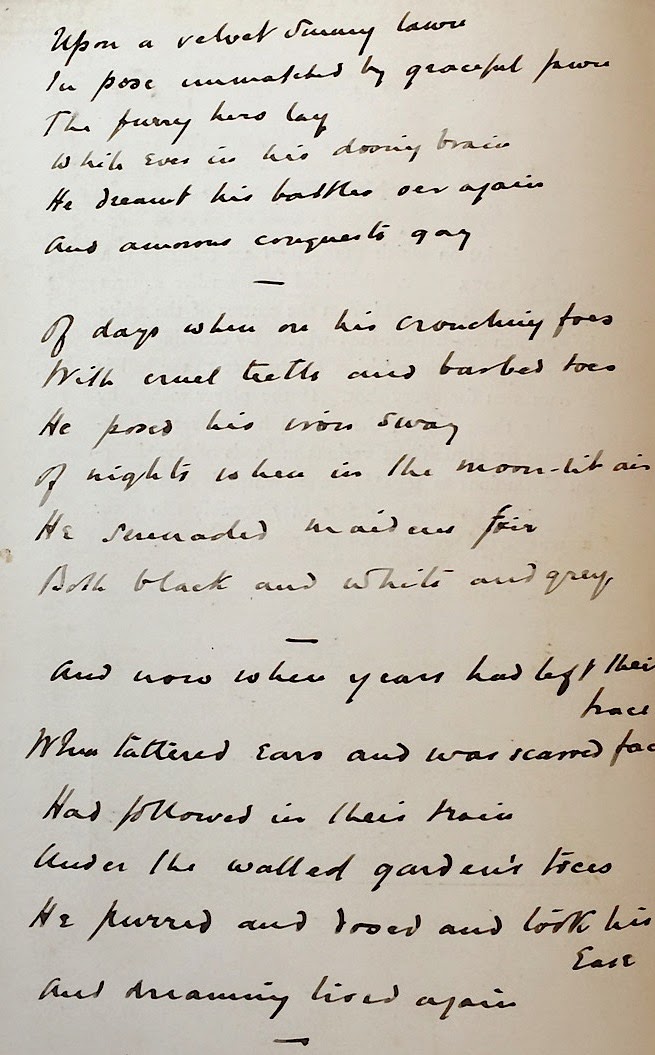 Upon a velvet sunny lawn
In pose unmatched by graceful fawn
The furry hero lay
While Even in his dosing brain
He dreamt his battles oer again
And amorous conquests gay
—
Of days when on his crouching foes
With cruel teeth and barbed toes
He posed his iron sway
Of nights when in the moon-lit air
He serenaded maidens fair
Both black and white and grey,
—
And now when years had left their
trace
When tattered Ears and war scarred fac
Had followed in their train
Under the walled garden's trees
He purred and dosed and took his
Ease
And dreaming lived again
—